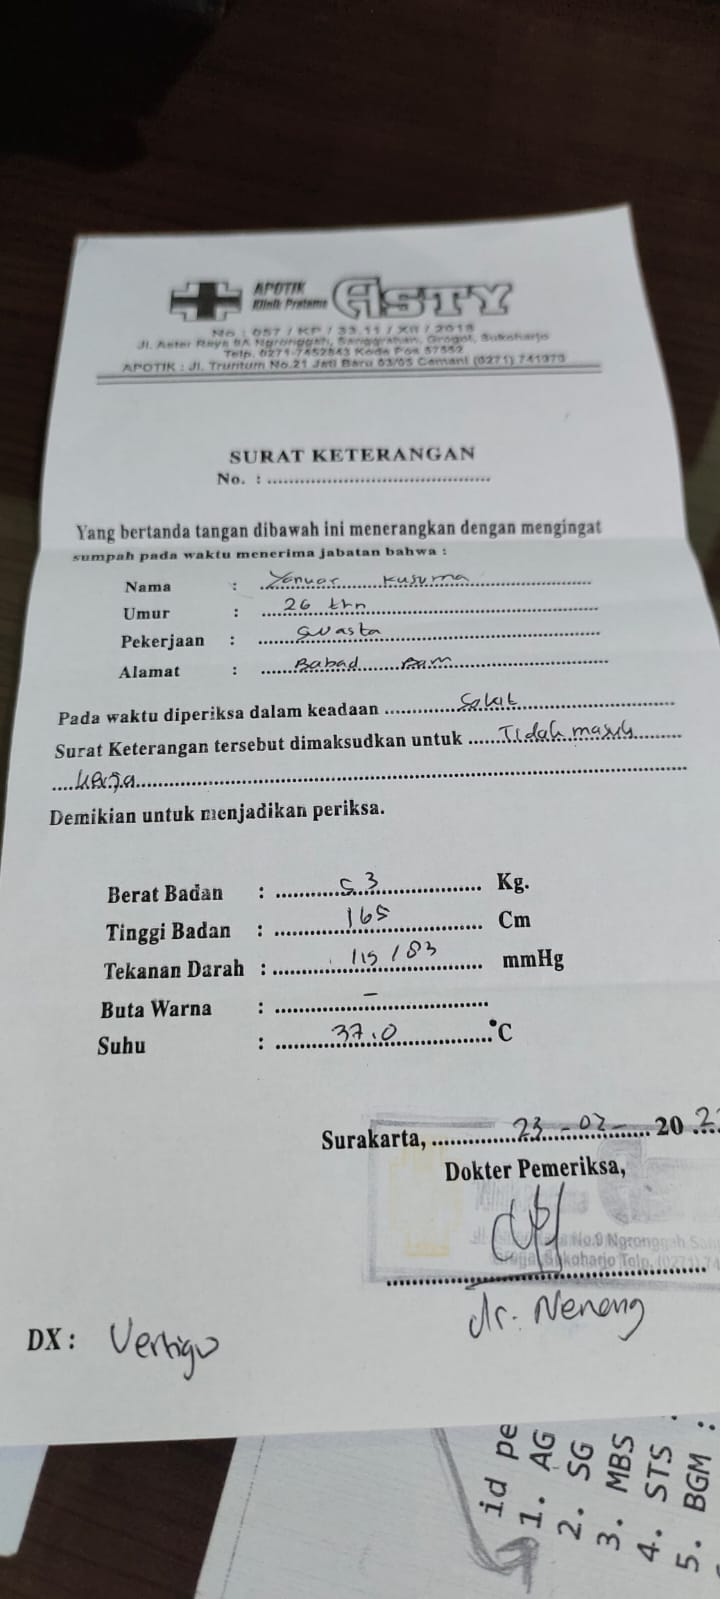 APOTIK
Klinik Pratama ASTY
No : 057 / KP / 33.11 / XII / 2018
Jl. Aster Raya 9A Ngronggah, Sanggrahan, Grogol, Sukoharjo
Telp. 0271-7452843 Kode Pos 57552
APOTIK : Jl. Truntum No.21 Jati Baru 03/05 Cemani (0271) 741373
SURAT KETERANGAN
No. :
Yang bertanda tangan dibawah ini menerangkan dengan mengingat
sumpah pada waktu menerima jabatan bahwa :
Nama : Yanuar Kusuma
Umur : 26 thn
Pekerjaan : Swasta
Alamat : Babad
Pada waktu diperiksa dalam keadaan Sakit
Surat Keterangan tersebut dimaksudkan untuk Tidak masuk
kerja
Demikian untuk menjadikan periksa.
Berat Badan : 53 Kg.
Tinggi Badan : 165 Cm
Tekanan Darah : 115 / 83 mmHg
Buta Warna : -
Suhu : 37.0 °C
Surakarta, 23 - 02 - 20
Dokter Pemeriksa,
No.9 Ngronggah
Sukoharjo Telp. (0271)
dr. Neneng
DX : Vertigo
id pe
1. AG
2. SG
3. MBS
4. STS
5. BGM :